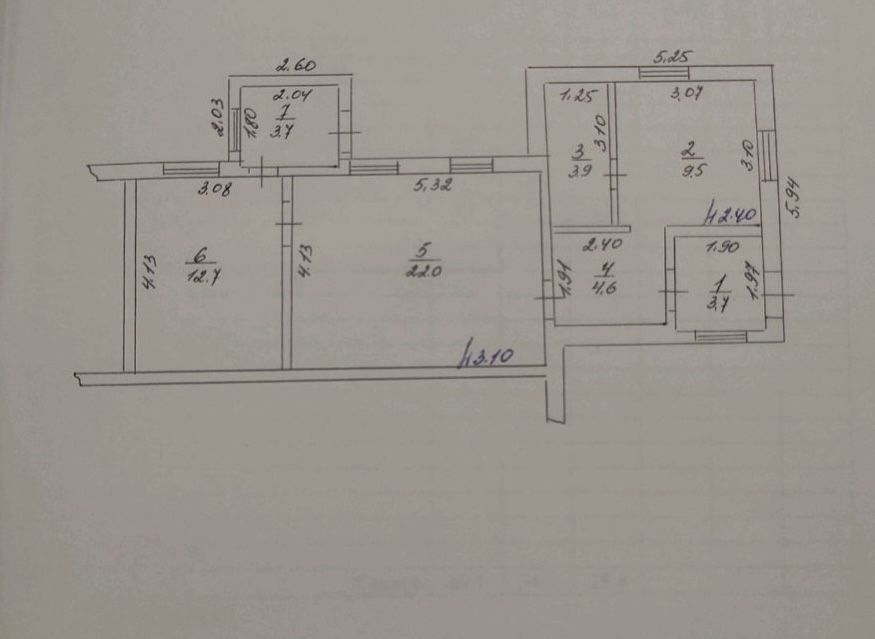 5,25
2.60
2.04
1,25
3,07
2,03
1,80
7
3.7
3,10
3
3.9
2
9.5
3.10
5,94
3.08
5,32
h2.40
4.13
6
12.7
4.13
5
22.0
2.40
1.90
1,91
4
4.6
1
3.7
1,97
h3.10